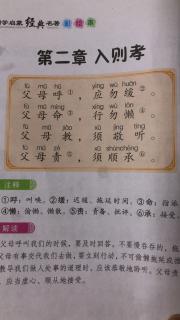 学启蒙 经典名著 彩绘本
第二章 入则孝
fù mǔ hū yīng wù huǎn
父母呼①，应勿缓②。
fù mǔ mìng xíng wù lǎn
父母命③，行勿懒④。
fù mǔ jiào xū jìng tīng
父母教，须敬听。
fù mǔ zé xū shùn chéng
父母责⑤，须顺承⑥。
注释
①呼：叫唤。②缓：迟缓、拖延时间。③命：指派
④懒：偷懒、懒散。⑤责：责备、批评。⑥承：接受、
解读
父母呼唤我们的时候，要及时回答，不要慢吞吞的。
父母有事交代我们去做，要立刻行动，不可偷懒拖延
教导我们做人处事的道理时，应该恭敬地聆听。父母
，应当虚心、顺从地接受。